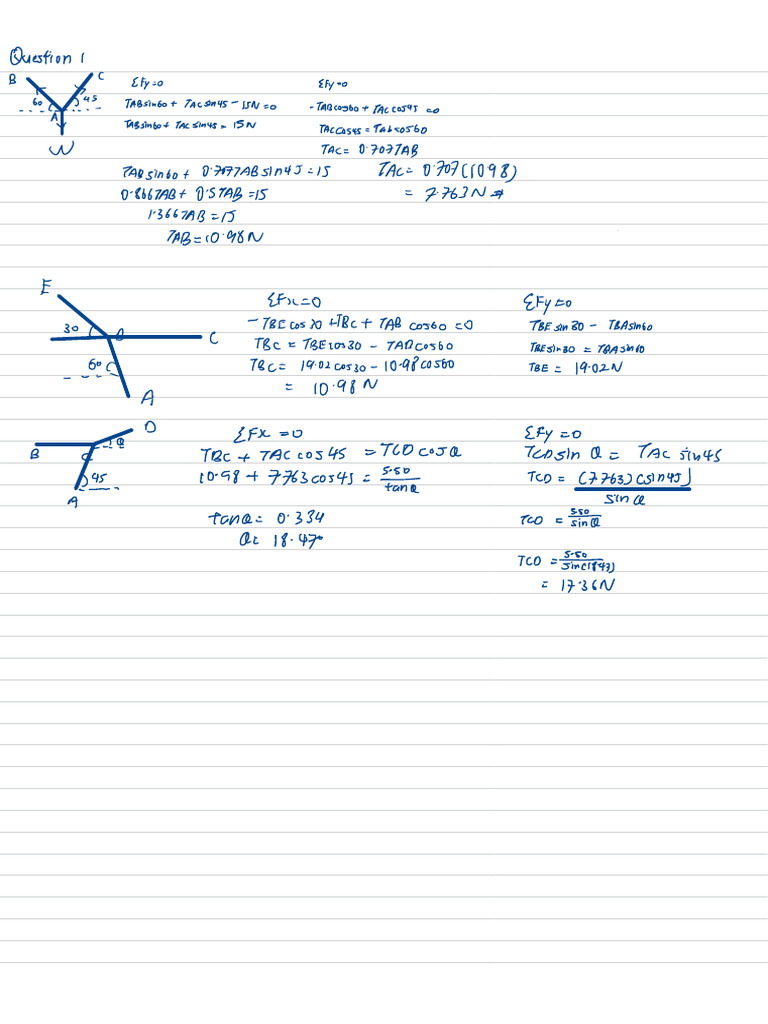 Question 1
B C
60 45
A
W
ΣFy=0
TABsin60 + TACsin45 - 15N = 0
TABsin60 + TACsin45 = 15N
ΣFy=0
-TABcos60 + TACcos45 = 0
TACcos45 = TABcos60
TAC = 0.707TAB
TABsin60 + 0.707TABsin45 = 15
0.866TAB + 0.5TAB = 15
1.366TAB = 15
TAB = 10.98N
TAC = 0.707(10.98)
= 7.763N
E
30 B C
60
A
ΣFx=0
-TBEcos30 + TBC + TAB cos60 = 0
TBC = TBEcos30 - TABcos60
TBC = 19.02cos30 - 10.98cos60
= 10.98N
ΣFy=0
TBEsin30 - TBAsin60
TBEsin30 = TBAsin60
TBE = 19.02N
D
B C θ
45
A
ΣFx = 0
TBC + TACcos45 = TCDcosθ
10.98 + 7.763cos45 = 5.50/tanθ
tanθ = 0.334
θ = 18.47°
ΣFy=0
TCDsinθ = TACsin45
TCD = (7.763)(sin45)/sinθ
TCD = 5.50/sinθ
TCD = 5.50/sin(18.47)
= 17.36N